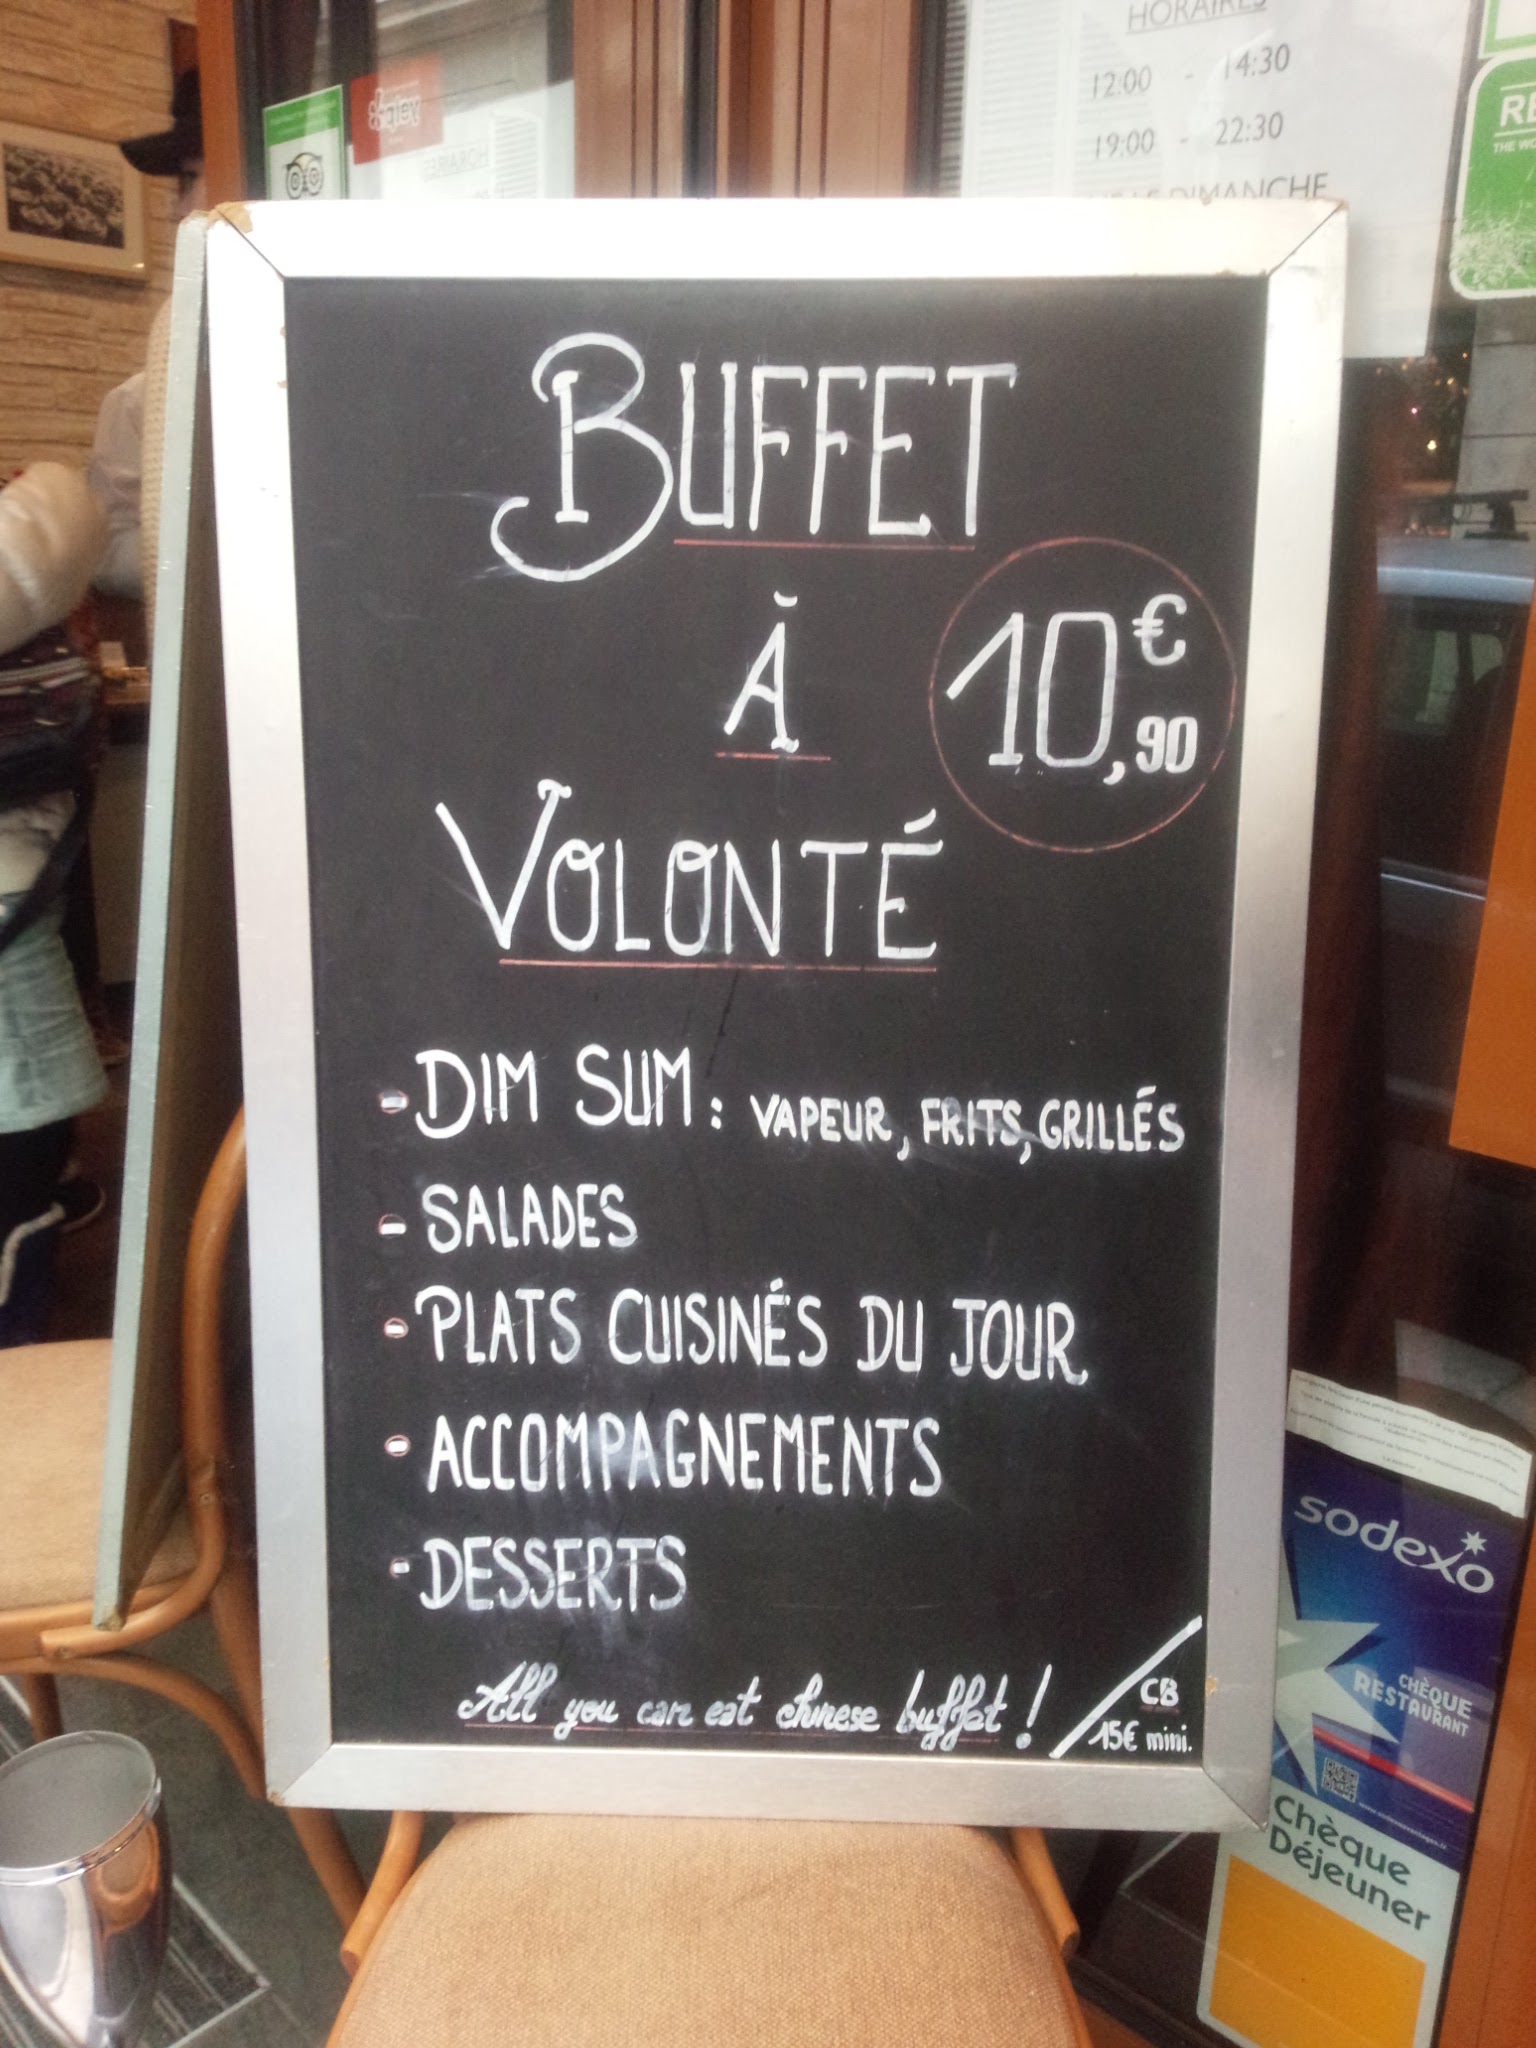 HORAIRES
12:00 - 14:30
19:00 - 22:30
LE DIMANCHE
yelp
HORAIRES
RE
THE WO
BUFFET
À
10,90 €
VOLONTÉ
- DIM SUM : VAPEUR, FRITS, GRILLÉS
- SALADES
- PLATS CUISINÉS DU JOUR
- ACCOMPAGNEMENTS
- DESSERTS
All you can eat chinese buffet !
CB
15€ mini.
sodexo
CHÈQUE
RESTAURANT
Chèque
Déjeuner